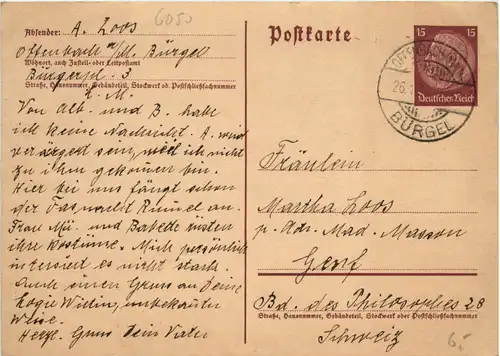 6050
Absender: A. Loos
Offenbach a/M. Bürgel
Wohnort, auch Zustell- oder Leitpostamt
Bürgerpl. 3
Straße, Hausnummer, Gebäudeteil, Stockwerk od. Postschließfachnummer
L. M.
Von Alb. und B. habe
ich keine Nachricht. A. wird
verärgert sein, weil ich nicht
zu ihm gekommen bin.
Hier bei uns fängt schon
der Fasnacht Rummel an.
Frau Mü. und Babette rüsten
ihre Kostüme. Mich persönlich
interessiert es nicht stark.
Auch einen Gruss an Deine
Logie Wirtin, unbekannter
Weise.
Herzl. Gruss Dein Vater
Postkarte
15 15
Deutsches Reich
OFFENBACH
BÜRGEL
Fräulein
Martha Loos
p. Adr. Mad. Masson
Genf
Bd. des Philosophes 28
Straße, Hausnummer, Gebäudeteil, Stockwerk oder Postschließfachnummer
Schweiz
6,-